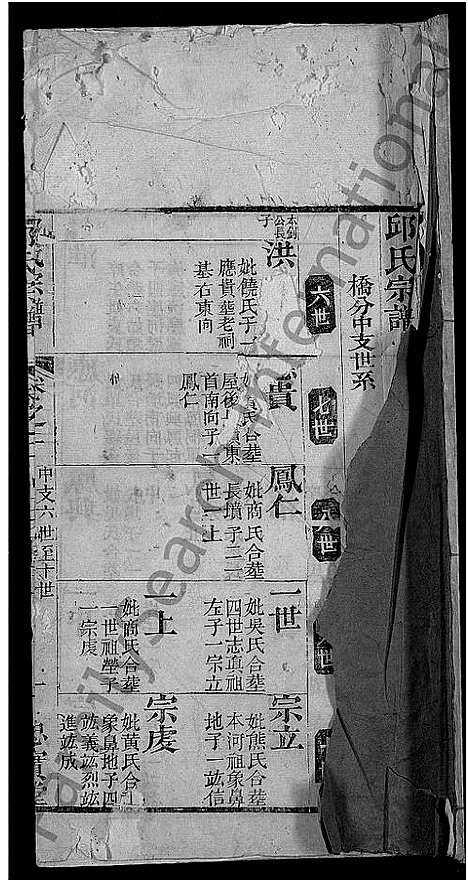 邱氏宗譜
橋分中支世系
六世
七世
本釗公長子
洪
妣饒氏子一
應貴葬老祠
基右東向
貴
妣黃氏合葬
首南向子一
鳳仁
鳳仁
妣商氏合葬
長墳子二一
世一上
一世
妣吳氏合葬
四世志真祖
左子一宗立
一上
妣商氏合葬
一世祖塋子
一宗虔
宗立
妣熊氏合葬
本河祖象鼻
地子一竑信
宗虔
妣黃氏合
象鼻地子四
竑義竑烈竑
進竑成
氏宗譜
中支六世至十世
FamilySearch International